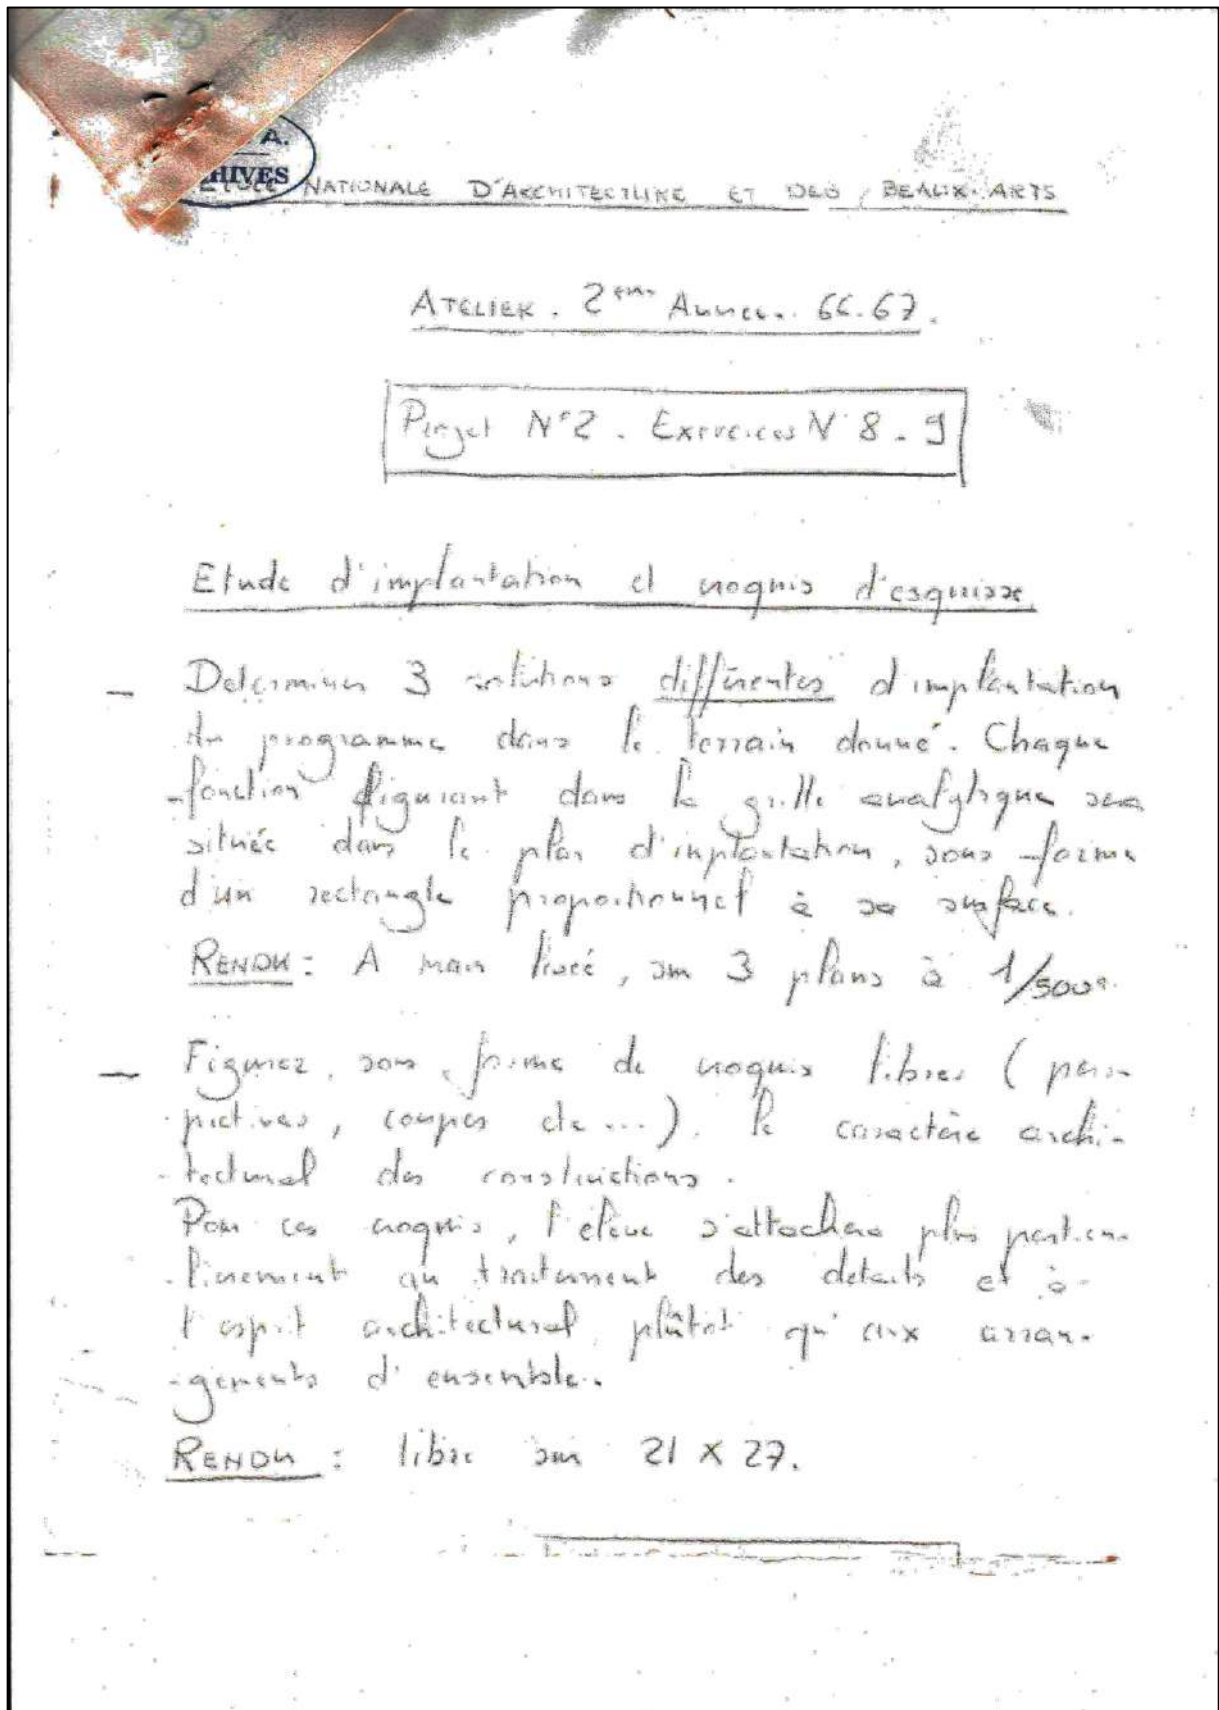 A.
HIVES
ECOLE NATIONALE D'ARCHITECTURE ET DES BEAUX-ARTS
ATELIER. 2ème Année. 66.67.
Projet N°2. Exercices N°8.9
Etude d'implantation et croquis d'esquisse.
- Determiner 3 solutions différentes d'implantation
du programme dans le terrain donné. Chaque
fonction figurant dans la grille analytique sera
située dans le plan d'implantation, sous forme
d'un rectangle proportionnel à sa surface.
RENDU: A main levée, sur 3 plans à 1/500e.
- Figurez, sous forme de croquis libres (pers-
pectives, coupes etc...). le caractère archi-
-tectural des constructions.
Pour ces croquis, l'élève s'attachera plus particu-
-lièrement au traitement des détails et à
l'esprit architectural plûtot qu'aux arran-
-gements d'ensemble.
RENDU: libre sur 21 X 27.